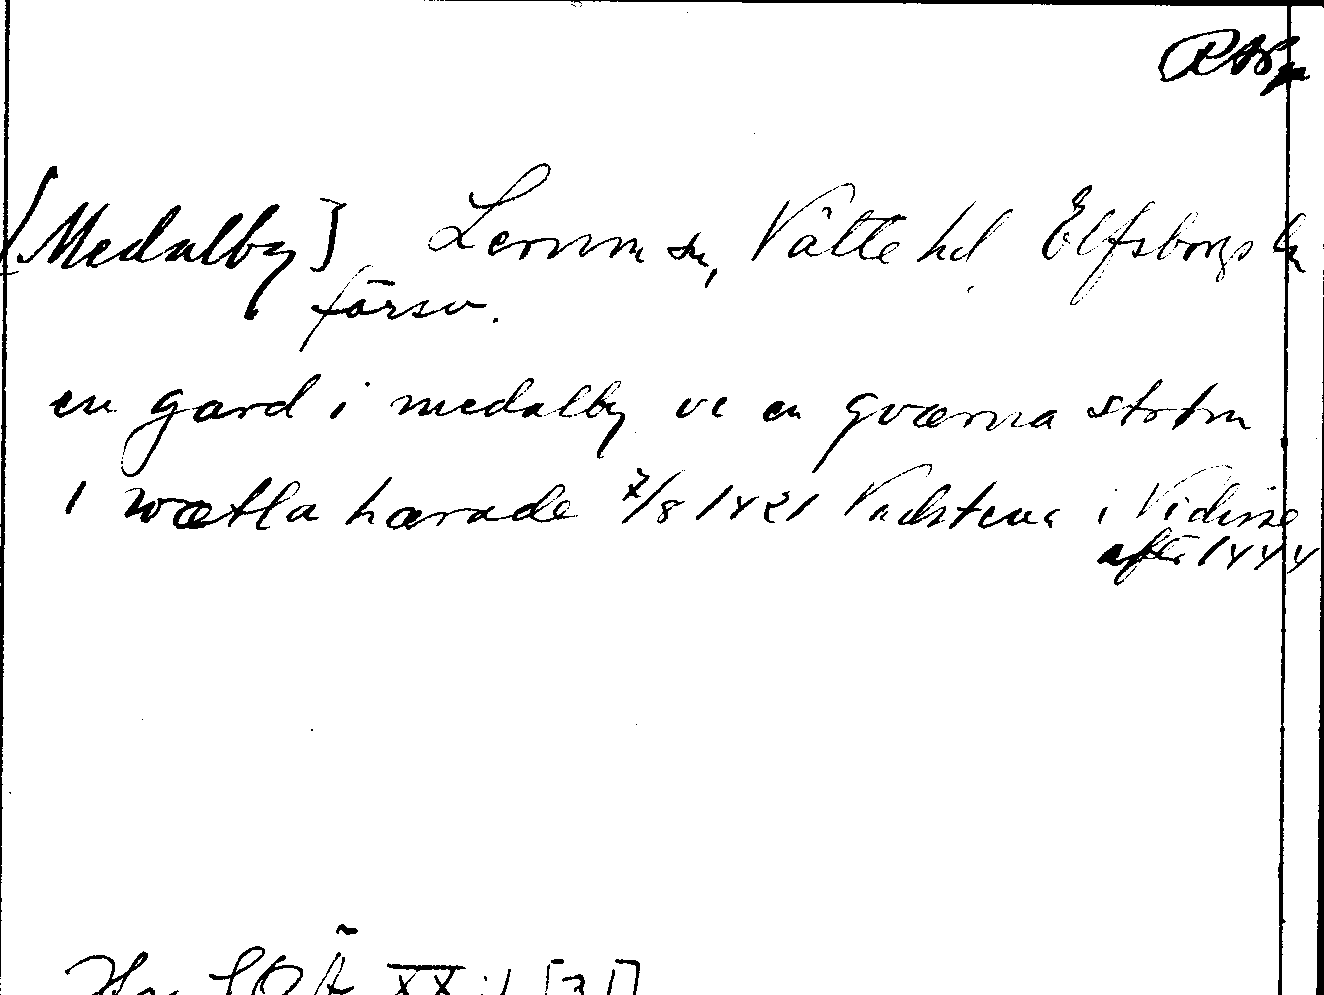 [Medalby] Lerum sn, Vätte hd Elfsborgs ln
försv.
en gard i medalby oc en qværna strøm
i wætla hærade 7/8 1421 Vadstena i Vidisse
efter 1444
XX:1 [31]